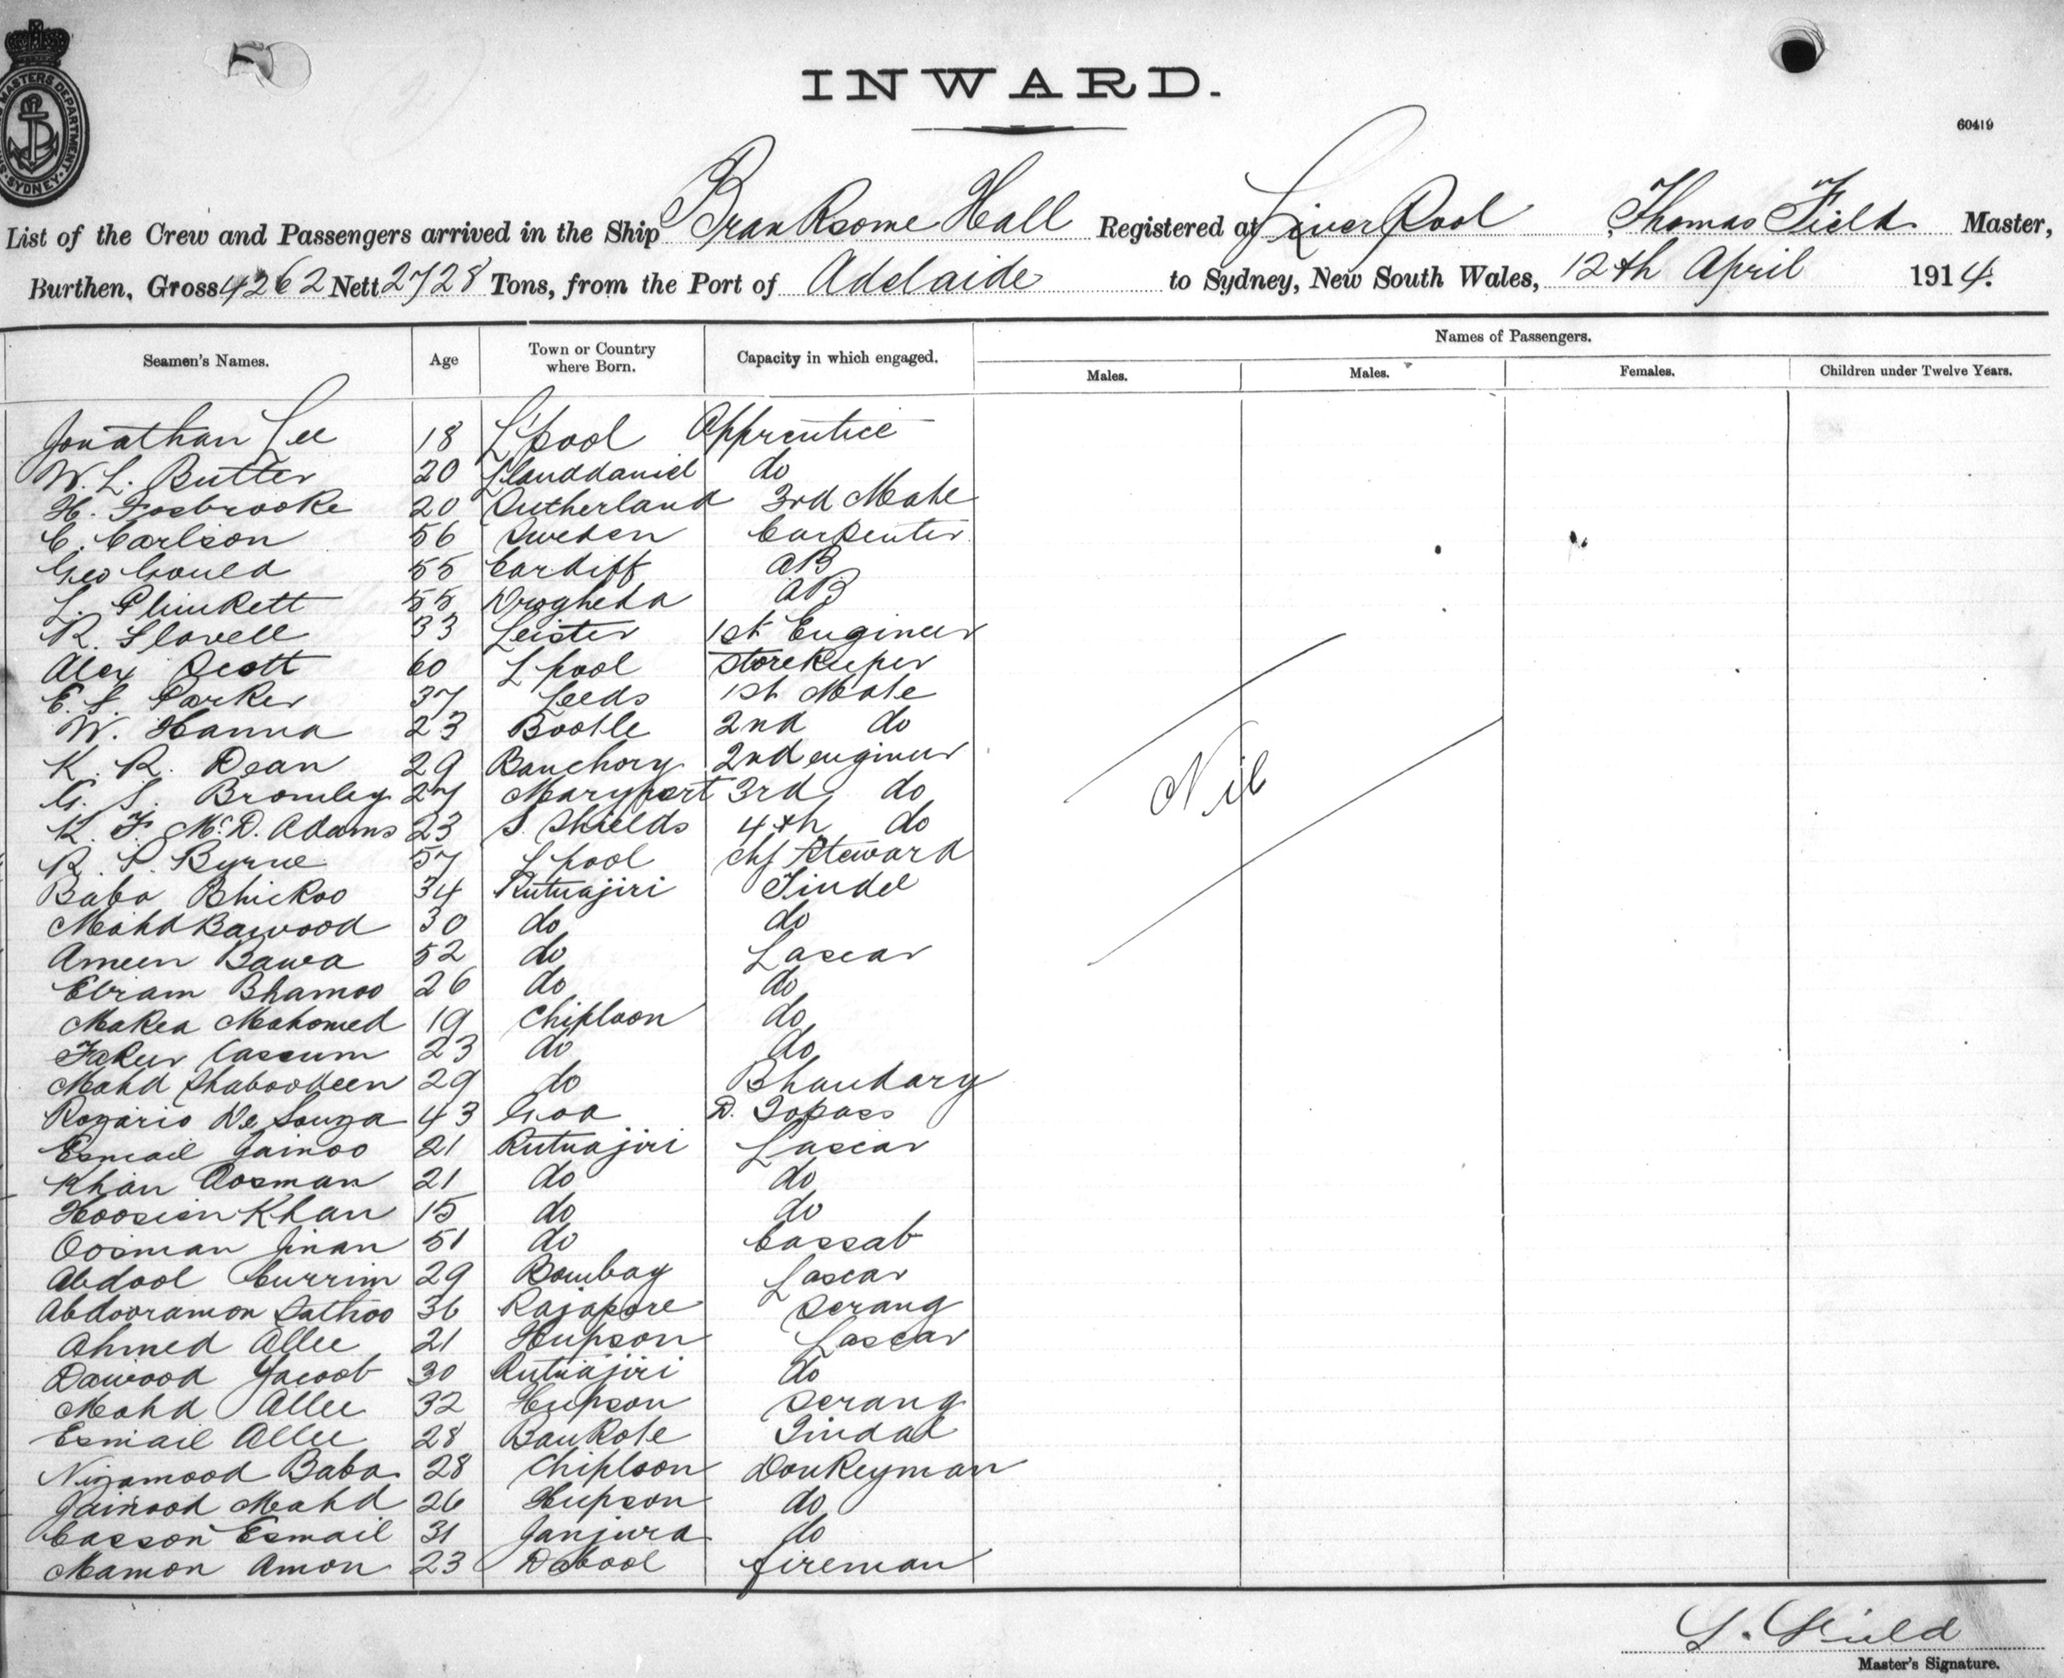 INWARD.
60419
List of the Crew and Passengers arrived in the Ship Branksome Hall Registered at Liverpool, Thomas Field Master,
Burthen, Gross 4262 Nett 2728 Tons, from the Port of Adelaide to Sydney, New South Wales, 12th April 1914.
Seamen's Names. Age Town or Country where Born. Capacity in which engaged. Names of Passengers.
Males. Males. Females. Children under Twelve Years.
Jonathan Lee 18 L'pool Apprentice
W. L. Butter 20 Llanddaniel do
H. Fosbrooke 20 Sutherland 3rd Mate
C. Carlson 56 Sweden Carpenter
Geo Gould 55 Cardiff AB
L. Plunkett 55 Drogheda AB
R. Flavell 33 Leister 1st Engineer
Alex Scott 60 L'pool Storekeeper
E. S. Parker 37 Leeds 1st Mate
W. Hanna 23 Bootle 2nd do
K. R. Dean 29 Banchory 2nd engineer
G. S. Bromley 27 Maryport 3rd do
K. F. McD. Adams 23 S. Shields 4th do
R. P. Byrne 57 L'pool chf Steward
Baba Bhickoo 34 Rutnajiri Tindel
Mahd Bawood 30 do do
Ameen Bawa 52 do Lascar
Ebram Bhamoo 26 do do
Makea Mahomed 19 Chiploon do
Fakeer Cassum 23 do do
Mahd Shaboodeen 29 do Bhandary
Rozario De Souza 43 Goa D. Topass
Esmail Jainoo 21 Rutnajiri Lascar
Khan Oosman 21 do do
Hoosien Khan 15 do do
Oosman Jinan 51 do Cassab
Abdool Currim 29 Bombay Lascar
Abdooramon Sathoo 36 Rajapore Serang
Ahmed Allee 21 Hupson Lascar
Dawood Yacoob 30 Rutnajiri do
Mahd Allee 32 Hupson Serang
Esmail Allee 28 Bankote Tindal
Nizamood Baba 28 Chiploon Donkeyman
Jainood Mahd 26 Hupson do
Casson Esmail 31 Janjura do
Mamon Amon 23 Dabool fireman
Nil
Master's Signature.